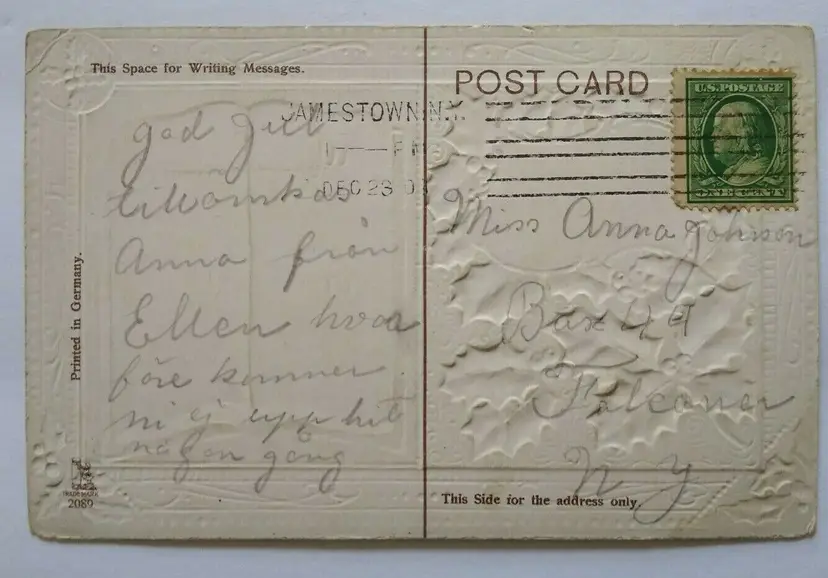 This Space for Writing Messages.
POST CARD
U.S. POSTAGE
ONE CENT
JAMESTOWN, N.Y.
DEC 23
god Jull
tillönskas
Anna från
Ellen hvar
före kommer
ni ej upp hit
någon gång
Miss Anna Johnson
Box 49
Falconer
N Y
Printed in Germany.
TRADE MARK
2089
This Side for the address only.